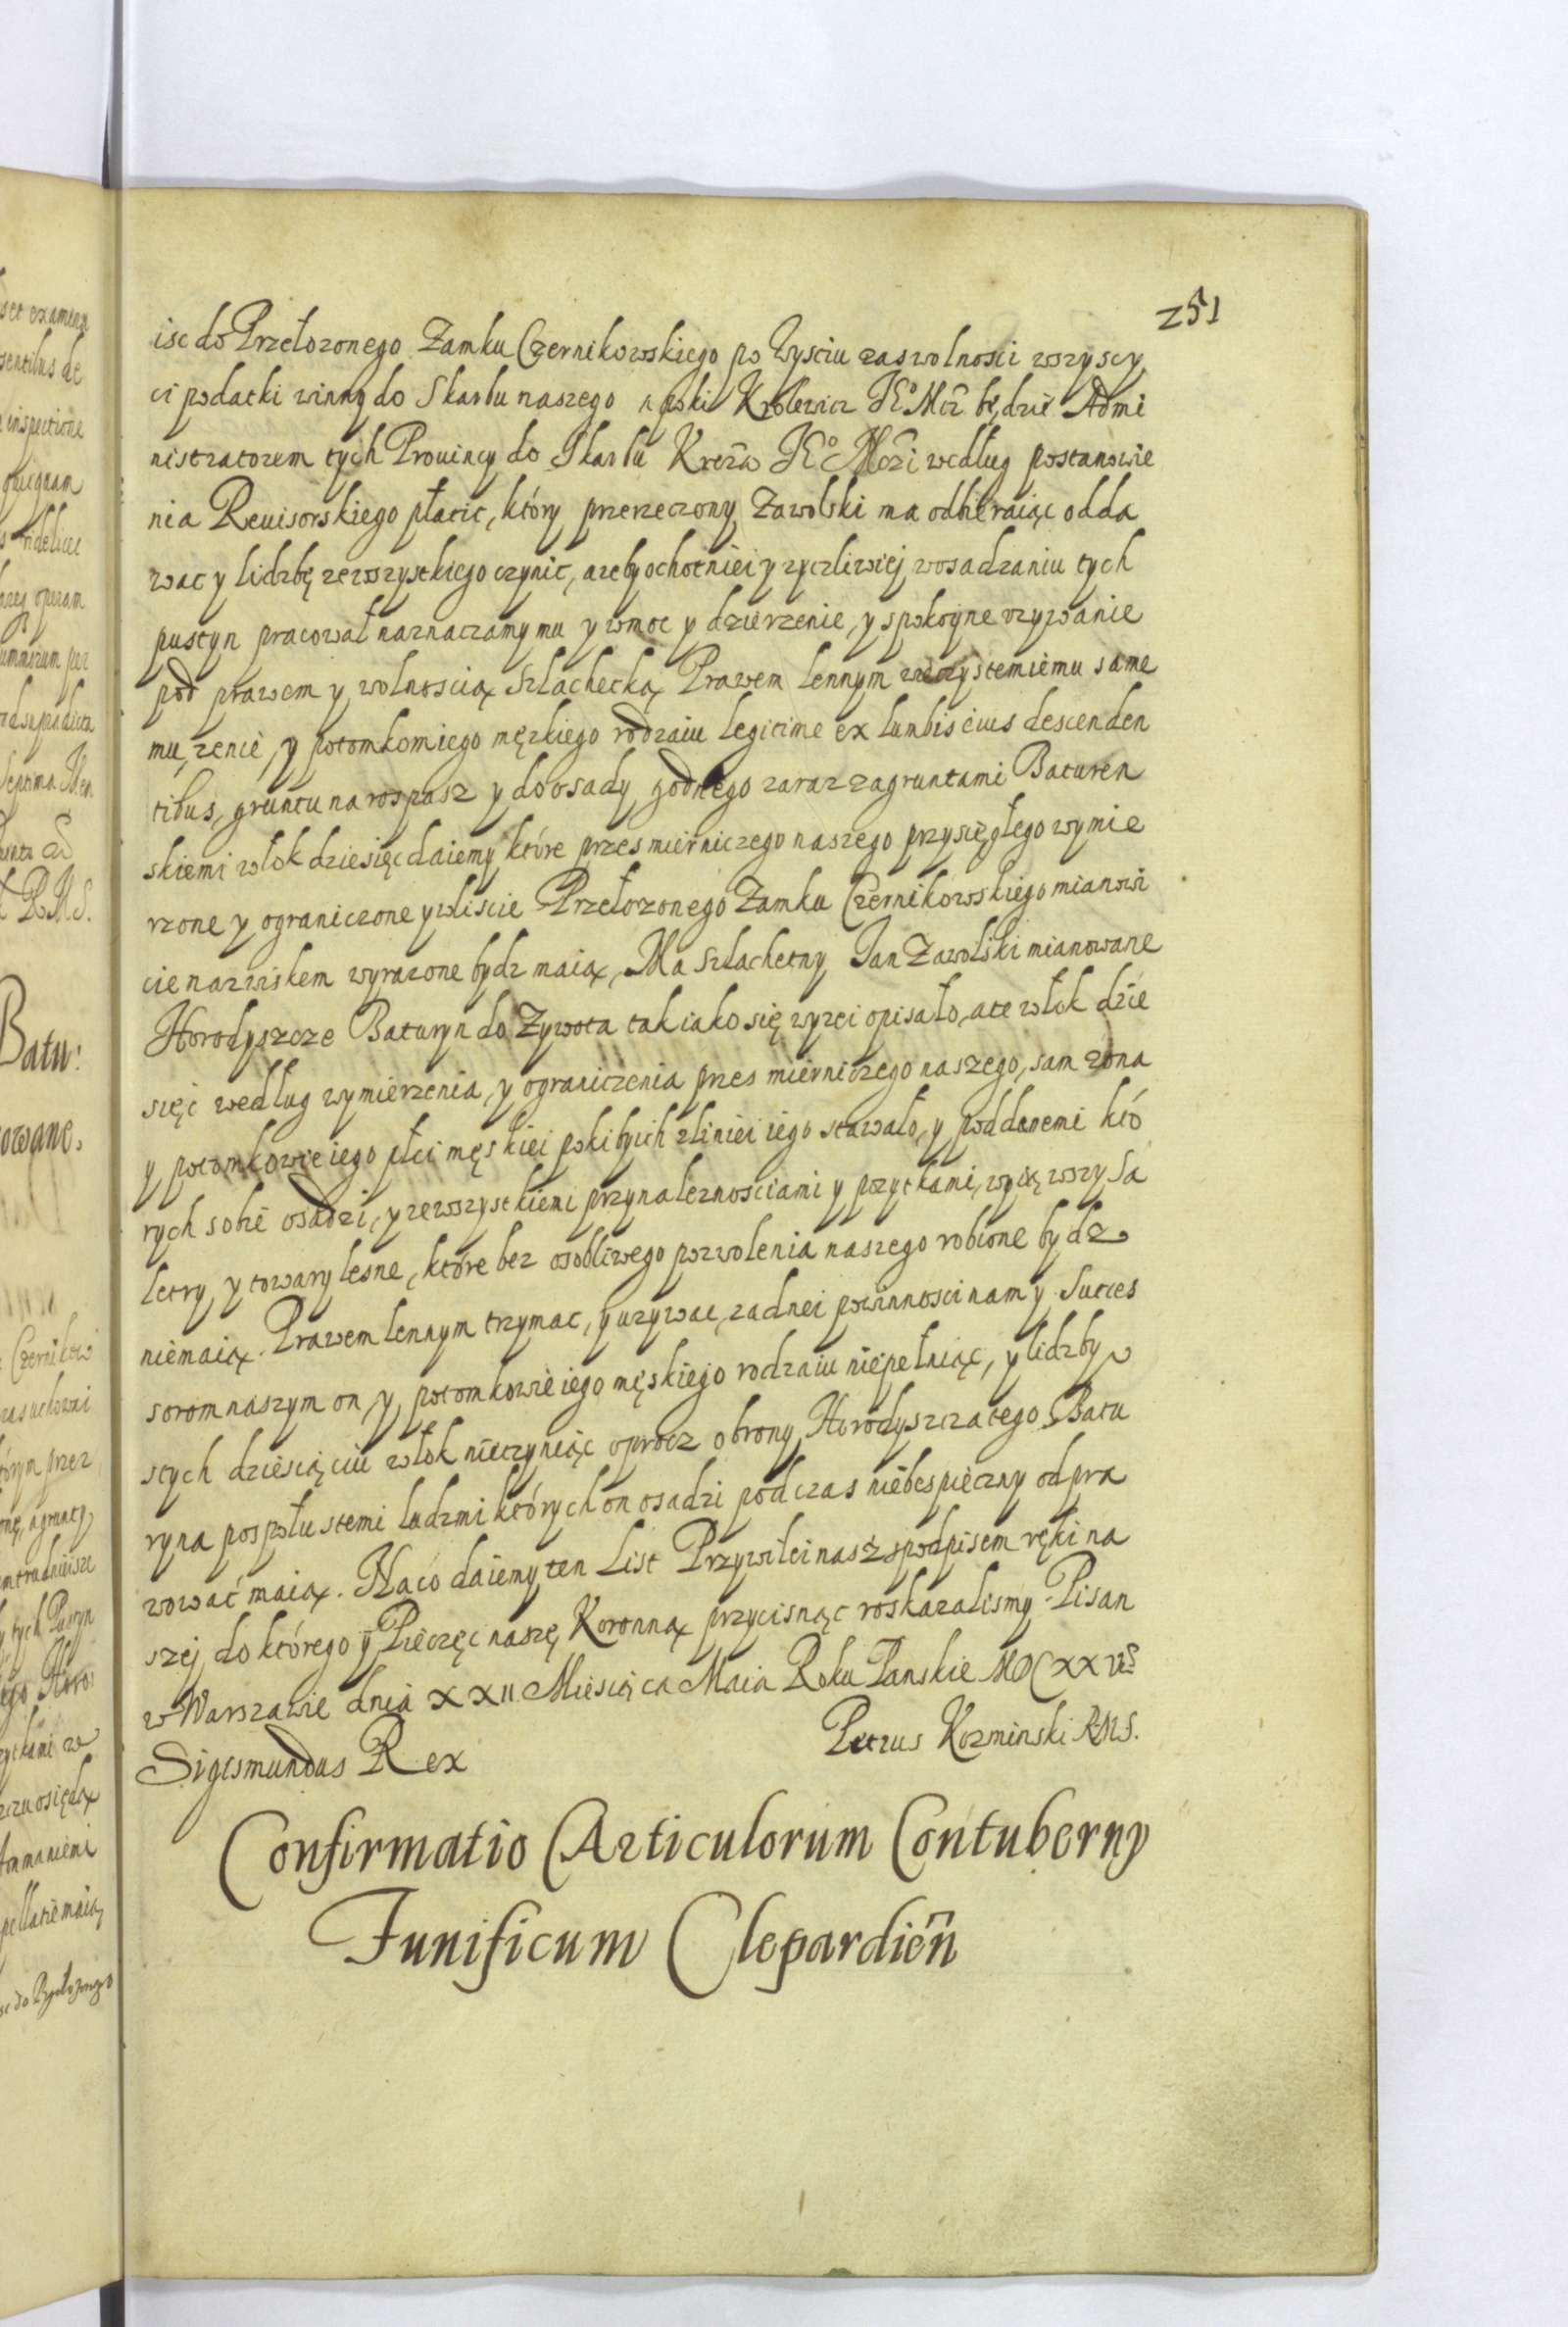 251
isc do Przełozonego Zamku Czernikowskiego po wysciu zas wolnosci wszyscy
ci podatki winny do Skarbu naszego a poki Krolewicz Ie° Mcz będzie Admi
nistratorem tych Prouincy do Skarbu Krcza Ie° Mczi według postanowie
nia Reuisorskiego płacic, który przerzeczony Zawolski ma odbieraiąc odda
wac y lidzbę zewszystkiego czynic, azeby ochotniei y zyczliwiej wosadzaniu tych
pustyn pracował naznaczamy mu y wmoc y dzierzenie, y spokoyne vzywanie
pod prawem y wolnoscią Szlachecką Prawem lennym wieczystemiemu same
mu, zenie, y potomkomiego męzkiego rodzaiu legitime ex lumbis eius descenden
tibus, gruntu na rospasz y do osady godnego zaraz zagruntami Baturen
skiemi włok dziesięc daiemy które przes mierniczego naszego przysięgłego wymie
rzone y ograniczone y wliscie Przełozonego Zamku Czernikowskiego mianowi
cie nazwiskem wyrazone bydz maią, Ma Szlachetny Jan Zawolski mianowane
Horodyszcze Baturyn do Zywota tak iako się wyzei opisało, a te włok dzie
sięc według wymierzenia, y ograniczenia przes mierniczego naszego, sam zona
y potomkowie iego płci męskiei poki bych zliniei iego stawało, y poddanemi któ
rych sobie osadzi, y zewszystkiemi przynaleznosciami y pozytkami, wyiąwszy Sa
letry, y towary lesne, które bez osobliwego pozwolenia naszego robione bydz
niemaią. Prawem lennym trzymac, y uzywac, zadnei powinnosci nam y Succes
sorom naszym on y potomkowie iego męskiego rodzaiu niepełniąc, y lidzby
stych dziesiąciu włok nieczyniąc oprocz obrony Horodyszcza tego Batu
ryna pospołu stemi ludzmi których on osadzi podczas niebespieczny odpra
wować maią. Naco daiemy ten List Przywilei nasz spodpisem ręki na
szej do którego y Pieczęc naszę Koronną przycisnąc roskazalismy. Pisan
w Warszawie dnia XXII Miesiąca Maia Roku Panskie MDCXXVI°
Sigismundus Rex
Petrus Kozminski RMS.
Confirmatio Articulorum Contuberny
Funificum Clepardień